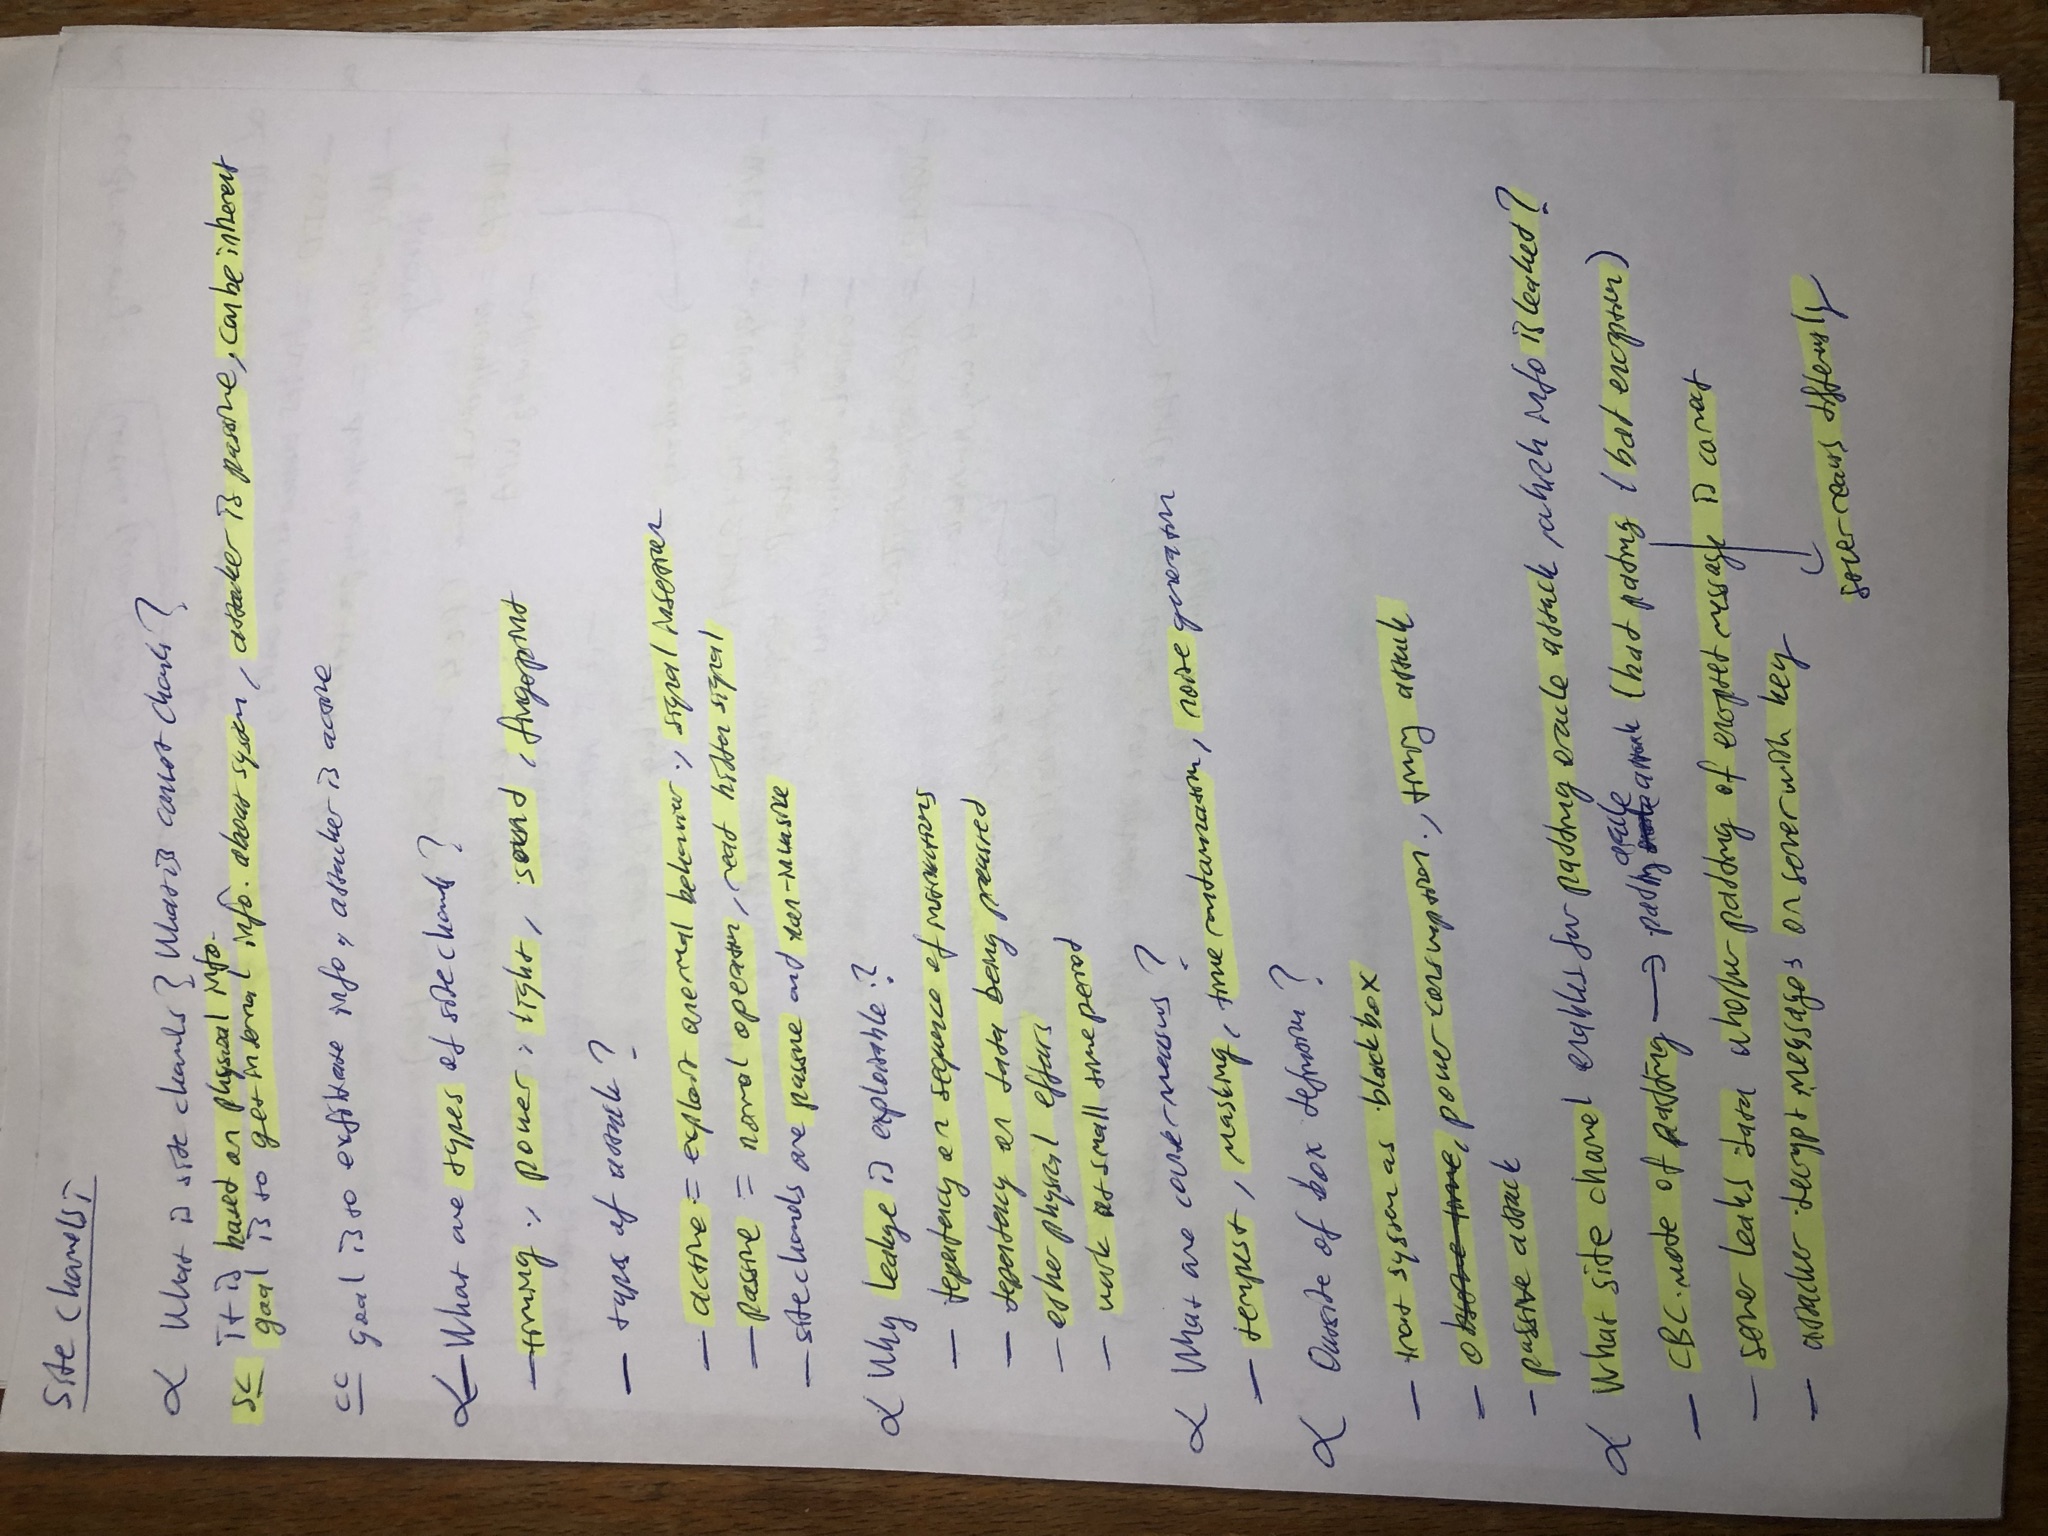 Side Channels I
α What is side channels? What is covert channels?
SC it is based on physical info.
goal is to get internal info. about system, attacker is passive, can be inherent
CC goal is to exfiltrate info, attacker is active
α What are types of side channels?
- timing, power, light, sound, fingerprint
- types of attack?
- active = exploit abnormal behavior, signal insertion
- passive = normal operation, read hidden signal
- side channels are passive and non-invasive
α Why leakage is exploitable?
- dependency on sequence of instructions
- dependency on data being processed
- other physical effects
- work at small time period
α What are counter-measures?
- tempest, masking, time randomization, noise generation
α Outside of box definition?
- treat system as blackbox
- observe time, power consumption, timing attack
- passive attack
α What side channel enables for padding oracle attack, which info is leaked?
- CBC-mode of padding → padding oracle attack (hat padding, bad encryption)
- server leaks data whether padding of encrypted message is correct
server reacts differently
- attacker decrypt messages on server with key